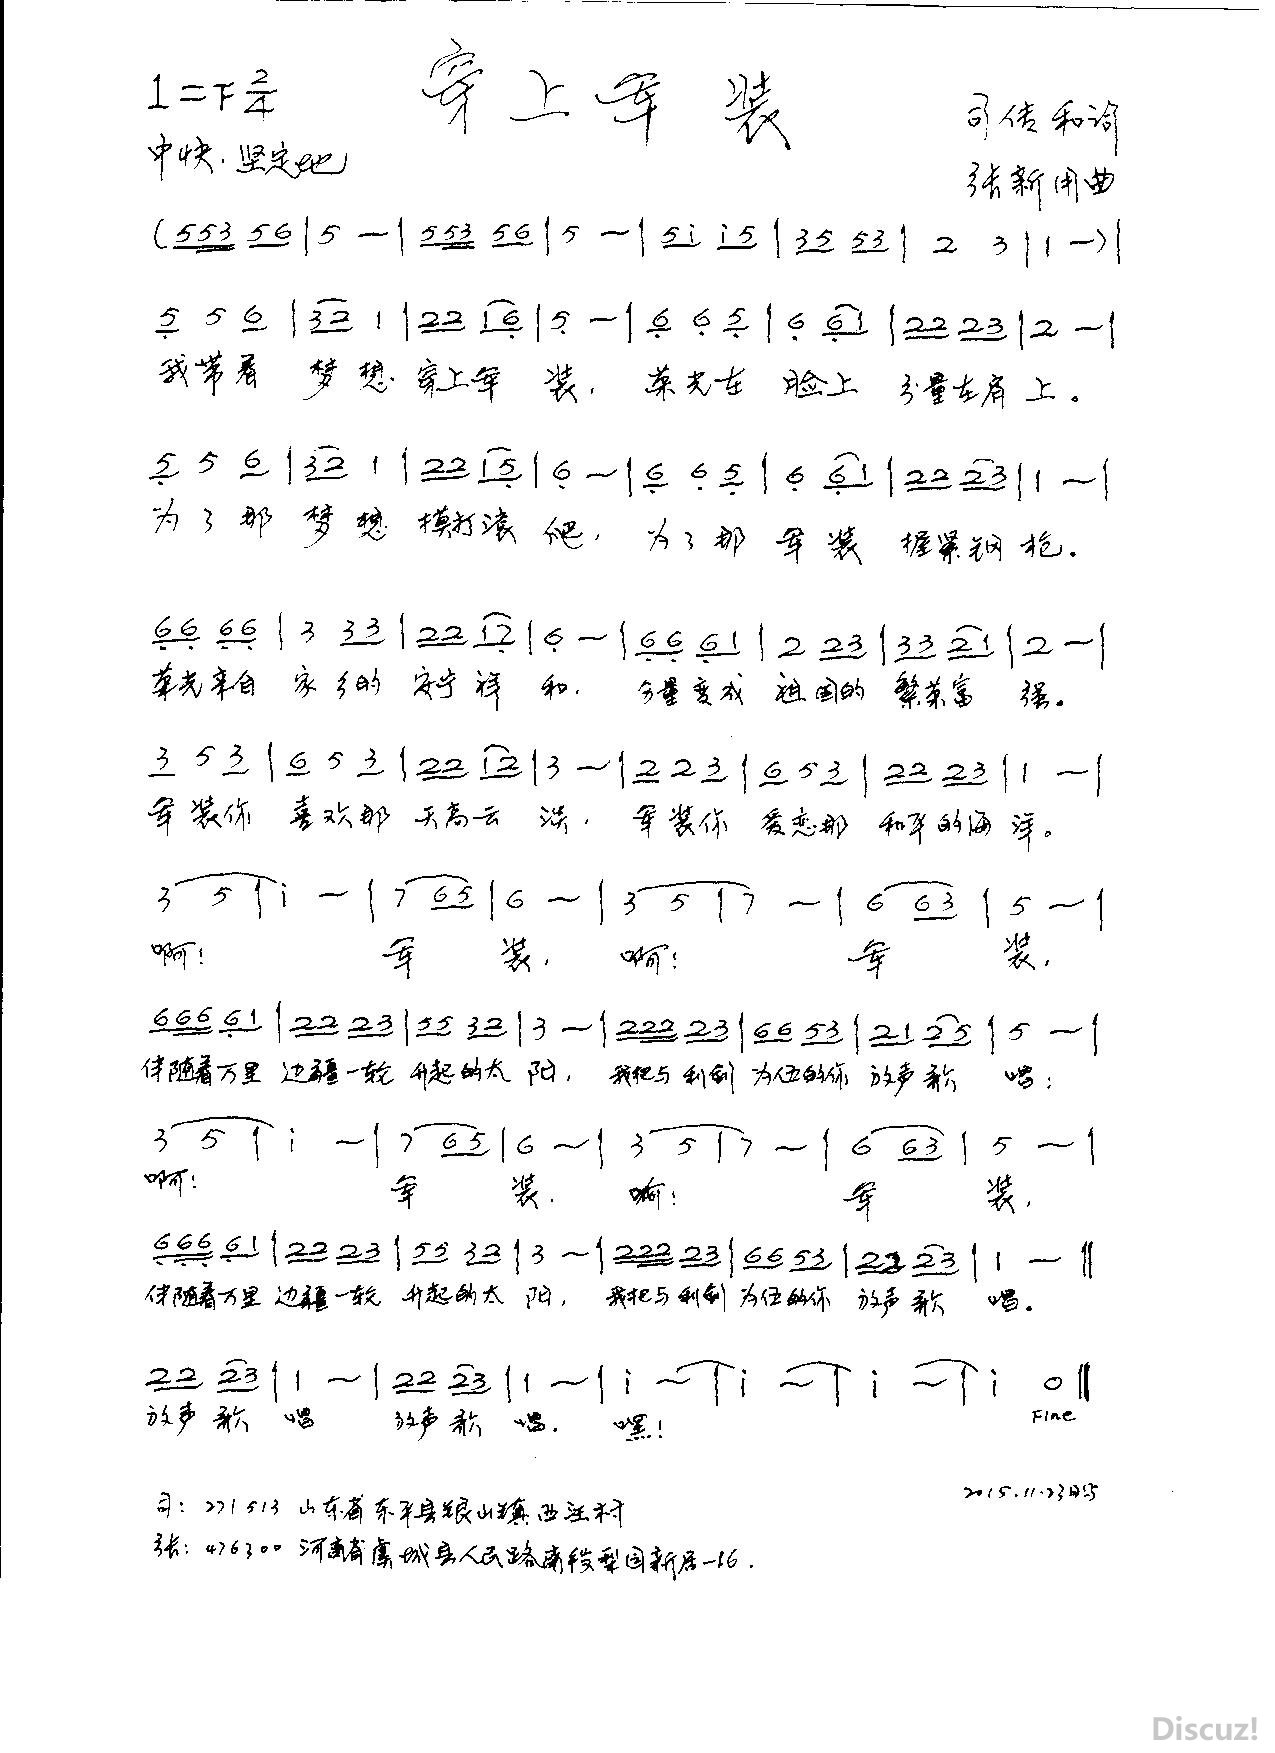 穿上军装
1=F 2/4
司传和词
中快.坚定地
张新用曲
(553 56|5 —|553 56|5 —|5i i5|35 53|2 3|1 —)|
5 5 6|32 1|22 16|5 —|6 6 5|6 61|22 23|2 —|
我带着 梦想 穿上军装, 荣光在脸上 分量在肩上。
5 5 6|32 1|22 15|6 —|6 6 5|6 61|22 23|1 —|
为了那 梦想 摸打滚爬, 为了那 军装 握紧钢枪.
66 66|3 33|22 12|6 —|66 61|2 23|33 21|2 —|
荣光来自 家乡的 安宁祥和. 分量变成 祖国的 繁荣富强。
3 5 3|6 5 3|22 12|3 —|2 2 3|6 5 3|22 23|1 —|
军装你 喜欢那 天高云淡, 军装你 爱恋那 和平的海洋。
3 5|i —|7 65|6 —|3 5|7 —|6 63|5 —|
啊! 军装, 啊! 军装,
666 61|22 23|55 32|3 —|222 23|66 53|21 25|5 —|
伴随着万里 边疆一轮 升起的太阳, 我把与利剑 为伍的你 放声歌唱;
3 5|i —|7 65|6 —|3 5|7 —|6 63|5 —|
啊! 军装. 啊! 军装,
666 61|22 23|55 32|3 —|222 23|66 53|22 23|1 —‖
伴随着万里 边疆一轮 升起的太阳, 我把与利剑 为伍的你 放声歌唱。
22 23|1 —|22 23|1 —|i —|i —|i —|i 0‖
放声歌唱 放声歌唱. 嘿!
Fine
2015.11.23日
司: 271513 山东省东平县银山镇西汪村
张: 476300 河南省虞城县人民路南段梨园新居-16.
Discuz!